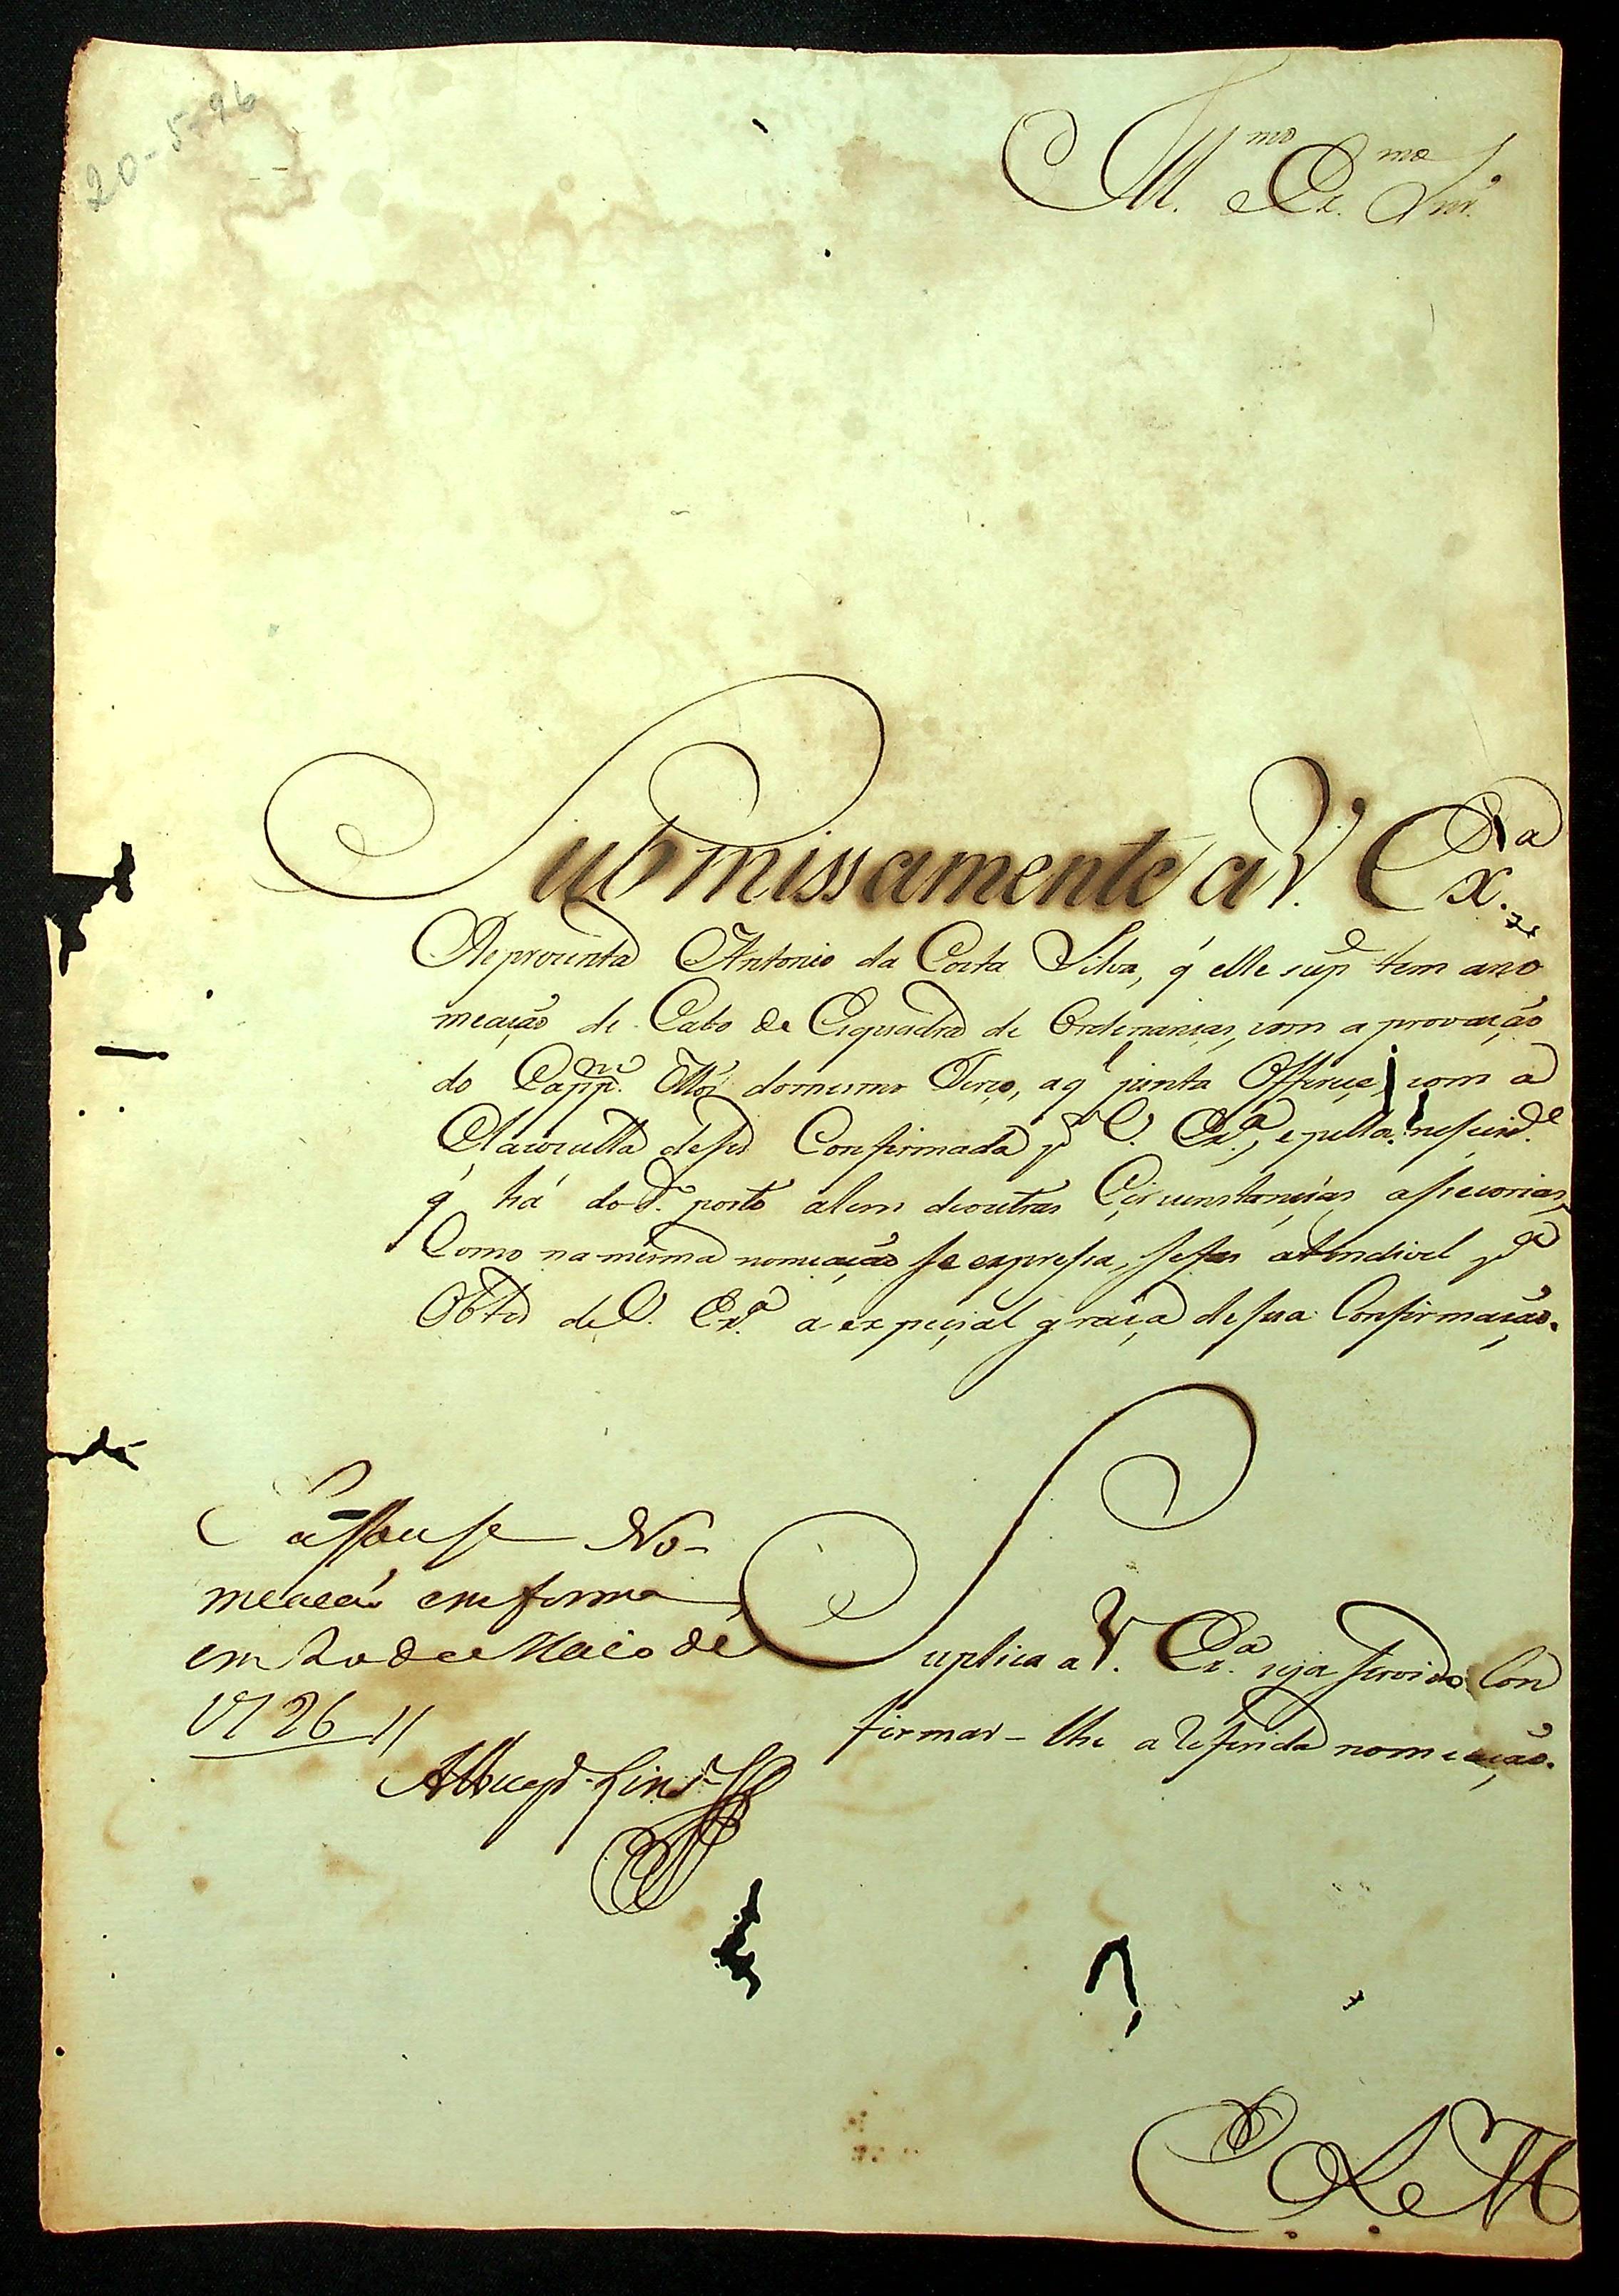 20-5-96
Ill.mo Ex.mo Snr.
Submissamente a V. Ex.a
Reprezenta Antonio da Costa Silva, q' elle sup.e tem a no
meação de Cabo de Esquadra de Ordenanças, com a provação
do Capp.m Mór do mesmo Terço, a q' junta Offerece, com a
Clauculla de ser Confirmada p.r V. Ex.a, e pella neceсid.e
q' há do d.o posto alem de outras Circunstancias acecorias
Como na mesma nomeação se expressa, se faz atendivel p.a
Obter de V. Ex.a a expecial graça de sua Confirmação.
Passe se No-
meacaõ em forma
em 20 de Maio de
1796 //
Suplica a V. Ex.a seja servido Con
firmar-lhe a referida nomeação.
E R M